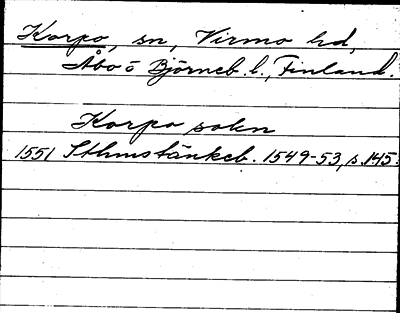 Korpo, sn, Virmo hd,
Åbo o Björneb. l., Finland.
Korpo sokn
1551 Sthmstänkeb. 1549-53, s. 145.